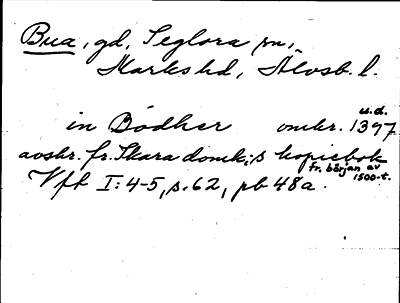 Bua, gd, Seglora sn,
Marks hd, Älvsb. l.
u.d.
in Bodher omkr. 1397
avskr. fr. Skara domk:s kopiebok
fr. början av
1500-t.
Vfk I: 4-5, s. 62, pb 48a.